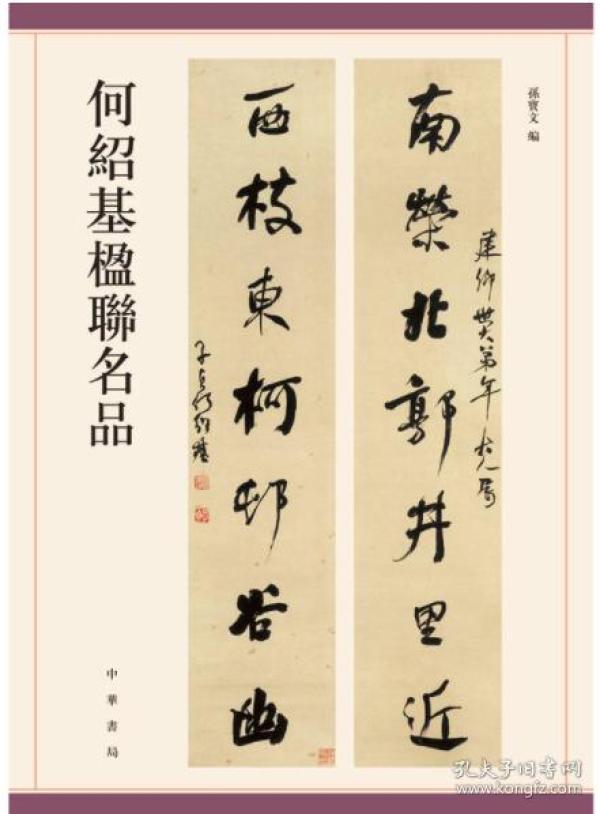 孫寶文 编
南榮北郭井里近
建卿世大弟年大人属
西枝東柯邨谷幽
子貞何紹基
何紹基楹聯名品
中華書局
孔夫子旧书网
www.kongfz.com